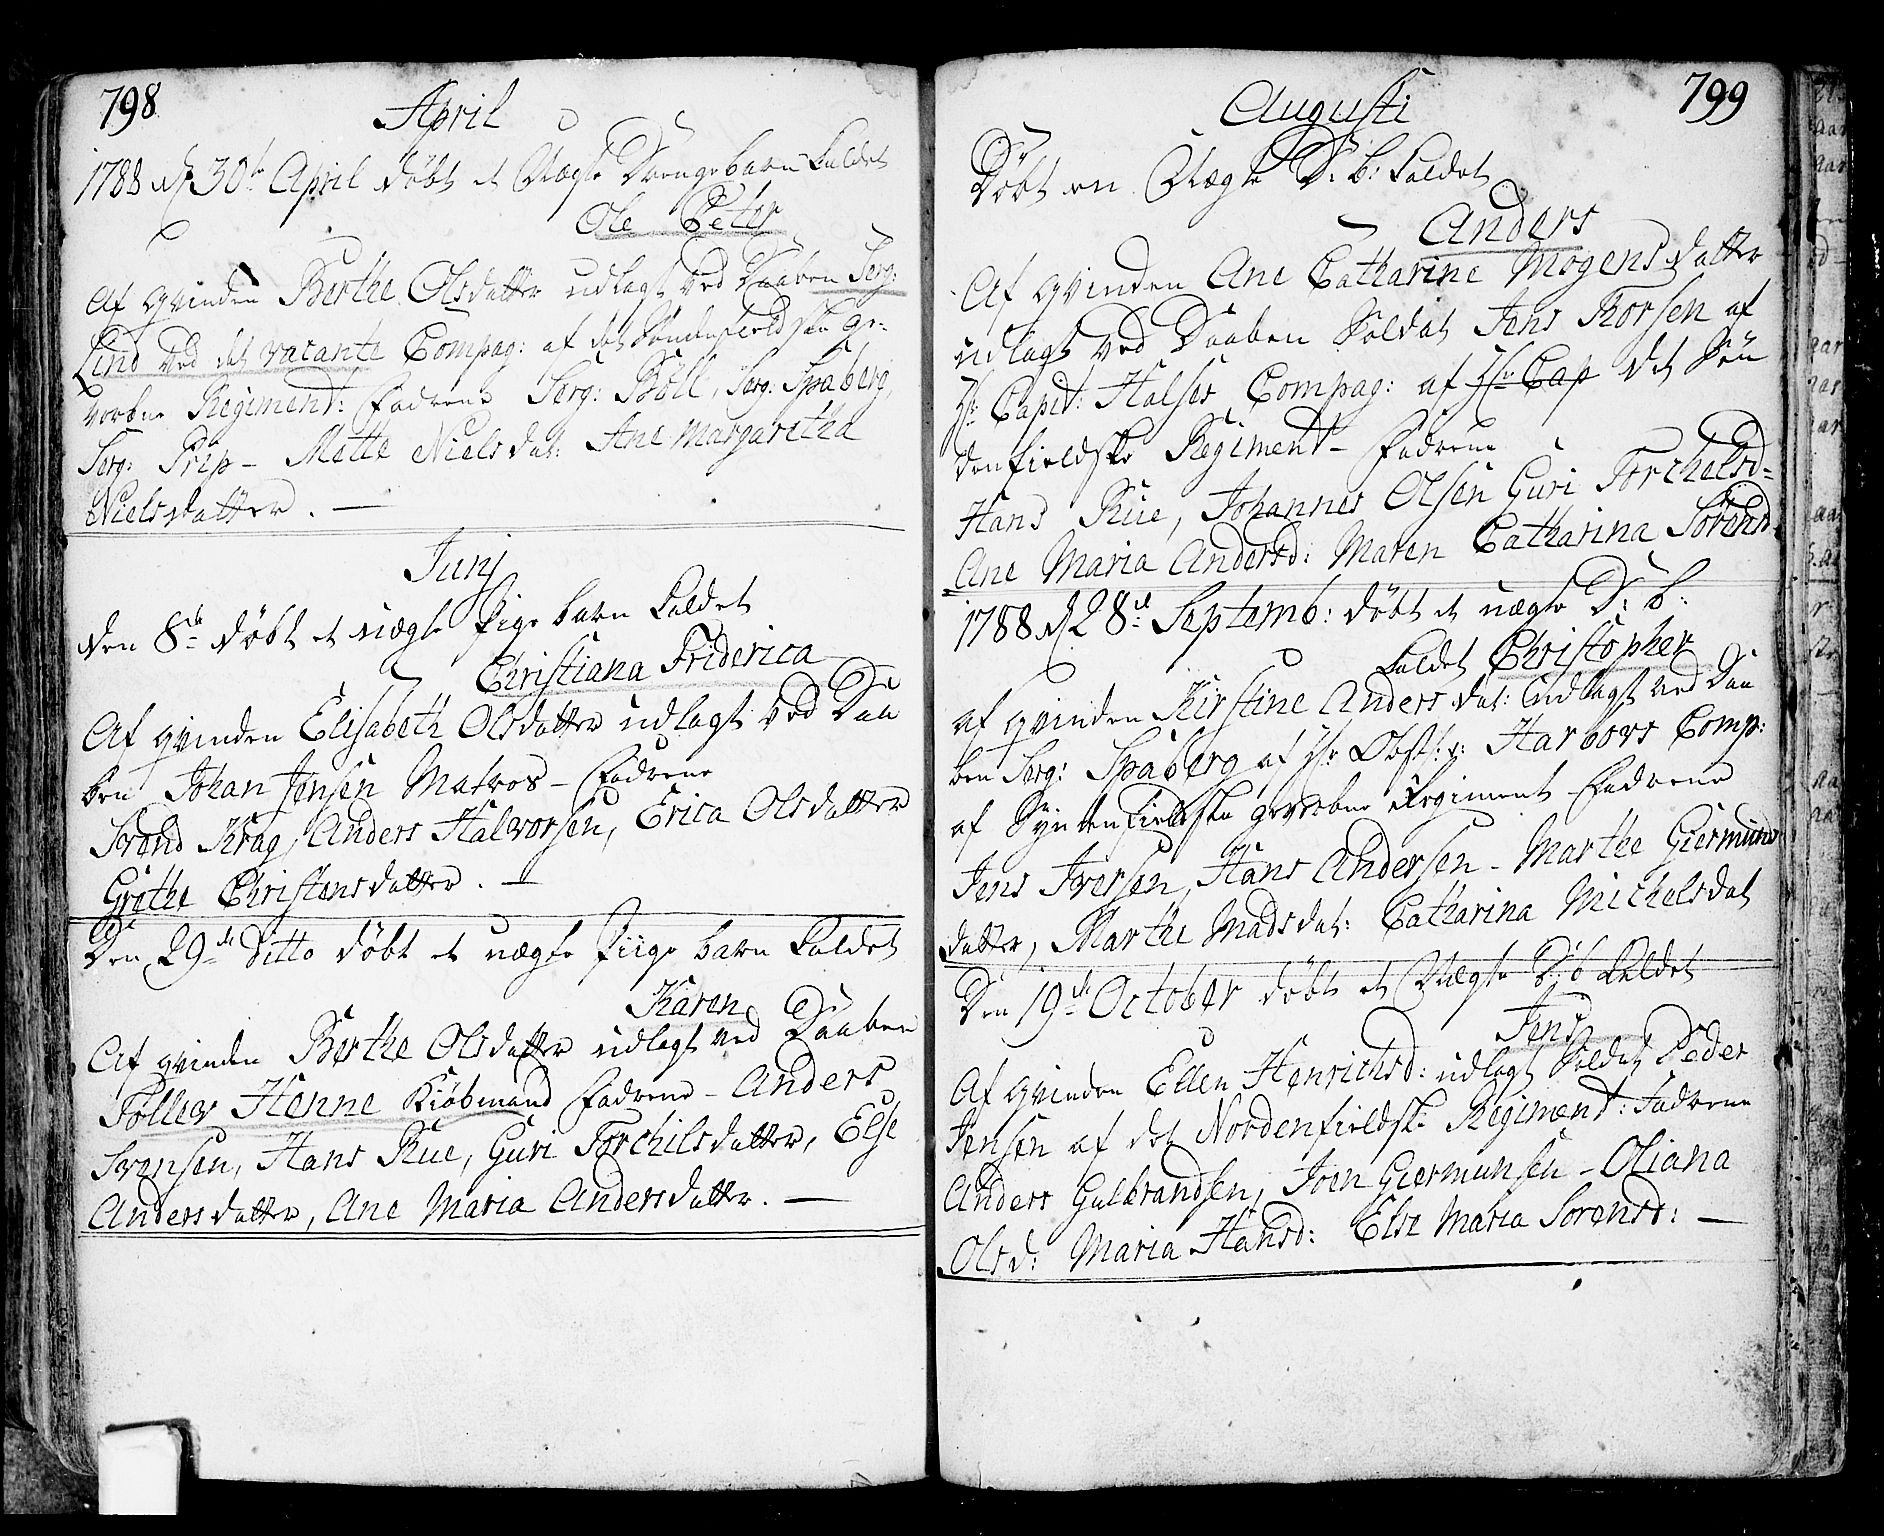 798
April
1788 d 30te April døbt et Uægte Drengebarn kaldet
Ole Peter
Af qvinden Berthe Olsdatter udlagt ved Daaben Serg:
Lind ved det vacante Compag: af det Søndenfieldske ge-
vorbne Regiment: Fadrene Serg: Böll, Serg: Spaberg,
Serg: Prip - Mette Nielsdat: Ane Margaretha
Nielsdatter. —
Junj
den 8de døbt et uægte Pige barn kaldet
Christiana Friderica
Af qvinden Elisabeth Olsdatter udlagt ved Daa
ben Johan Jensen Matros - Fadrene
Svend Krag, Anders Halvorsen, Erica Olsdatter
Grethe Christensdatter. —
Den 29de Ditto døbt et uægte Piige barn kaldet
Karen
Af qvinden Berthe Olsdatter udlagt ved Daaben
Toller Henne Kiøbmand Fadrene - Anders
Svensen, Hans Rue, Guri Torchilsdatter, Else
Andersdatter, Ane Maria Andersdatter. —
799
Augusti
Døbt en Uægte D: b: kaldet
Anders
Af qvinden Ane Catharine Mogensdatter
udlagt ved Daaben Soldat Jens Korsen af
Hr Capit: Halses Compag: af Hr Cap det Søn
denfieldske Regiment - Fadrene
Hans Rue, Johannes Olsen Guri Torchelsd-
Ane Maria Andersd: Maren Catharina Sørensd:
1788 d 28de Septemb: døbt et uægte D: b:
kaldet Christopher
af qvinden Kirstine Andersdat: udlagt ved Daa
ben Serg: Spaberg af Hr Obst: v: Harbors Comp:
af Syndenfieldske gevorbne Regiment Fadrene
Jens Iversen, Hans Andersen - Marthe Giermunds
datter, Marthe Madsdat: Catharina Michelsdat
Den 19de October døbt et Uægte D: b kaldet
Jens
Af qvinden Ellen Henrichsd: udlagt Soldat Peder
Jensen af det Nordenfieldske Regiment: Fadrene
Anders Gulbrandsen, Joen Giermunsen - Oliana
Olsd: Maria Hansd: Else Maria Sorensd: —